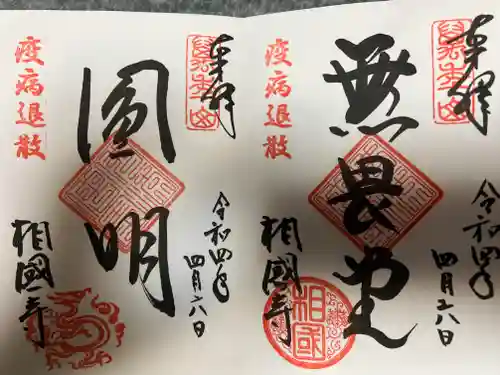 奉拝
萬年山
令和四年
四月六日
無畏堂
疫病退散
相國寺
相國
奉拝
萬年山
令和四年
四月六日
圓明
疫病退散
相國寺